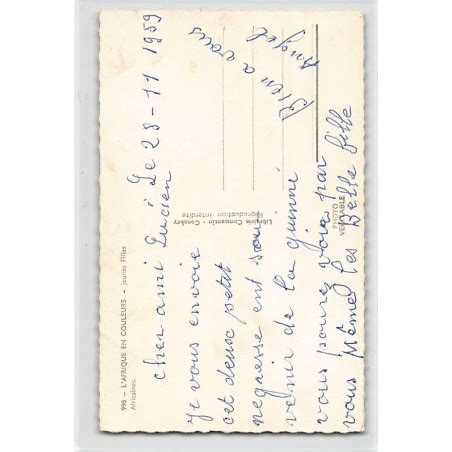 998 - L'AFRIQUE EN COULEURS - Jeunes Filles
Africaines.
Le 28-11 1959
cher ami Lucien
je vous envoie
cet deuse petit
negresse ent souve
venir de la guinné
vous pourez voir par
vous Mêmes les Belle fille
Bien a vous
Angel
Librairie Constantin - Conakry
Reproduction interdite
PHOTO
VERITABLE